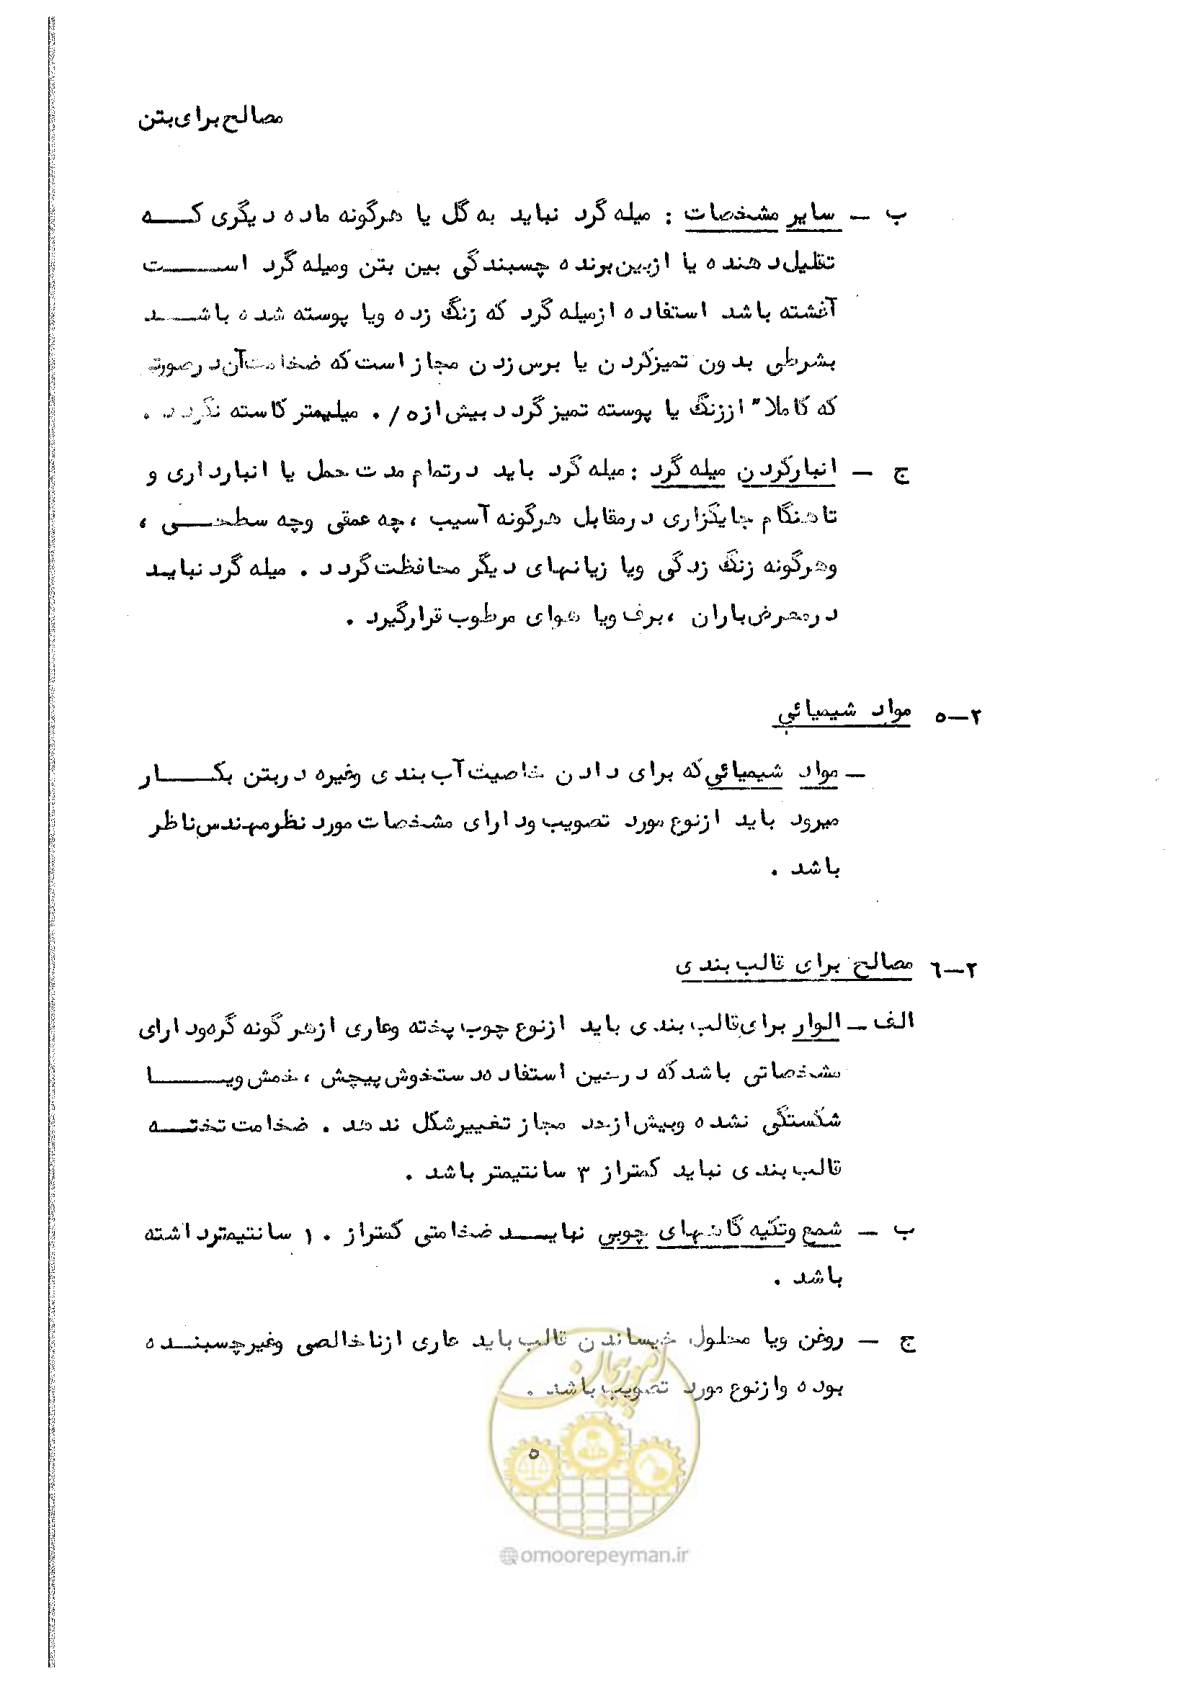 مصالح برای بتن
ب – سایر مشخصات : میله گرد نباید به گل یا هرگونه ماده دیگری که
تقلیل دهنده یا ازبین برنده چسبندگی بین بتن ومیله گرد است
آغشته باشد استفاده ازمیله گرد که زنگ زده ویا پوسته شده باشد
بشرطی بدون تمیزکردن یا برس زدن مجاز است که ضخامت آن درصورتی
که کاملا" اززنگ یا پوسته تمیز گردد بیش از ۵/۰ میلیمتر کاسته نگردد .
ج – انبارکردن میله گرد : میله گرد باید درتمام مدت حمل یا انبارداری و
تاهنگام جایگزاری درمقابل هرگونه آسیب ، چه عمقی وچه سطحی ،
وهرگونه زنگ زدگی ویا زیانهای دیگر محافظت گردد . میله گرد نباید
درمعرض باران ، برف ویا هوای مرطوب قرارگیرد .
۲–۵ مواد شیمیائی
– مواد شیمیائی که برای دادن خاصیت آب بندی وغیره دربتن بکار
میرود باید ازنوع مورد تصویب ودارای مشخصات مورد نظرمهندس ناظر
باشد .
۲–۶ مصالح برای قالب بندی
الف – الوار برای قالب بندی باید ازنوع چوب پخته وعاری ازهر گونه گره ودارای
مشخصاتی باشد که درحین استفاده دستخوش پیچش ، خمش ویا
شکستگی نشده وبیش ازحد مجاز تغییرشکل ندهد . ضخامت تخته
قالب بندی نباید کمتراز ۳ سانتیمتر باشد .
ب – شمع وتکیه گاههای چوبی نباید ضخامتی کمتراز ۱۰ سانتیمترداشته
باشد .
ج – روغن ویا محلول خیساندن قالب باید عاری ازناخالصی وغیرچسبنده
بوده وازنوع مورد تصویب باشد .
امور پیمان
۵
@omoorepeyman.ir